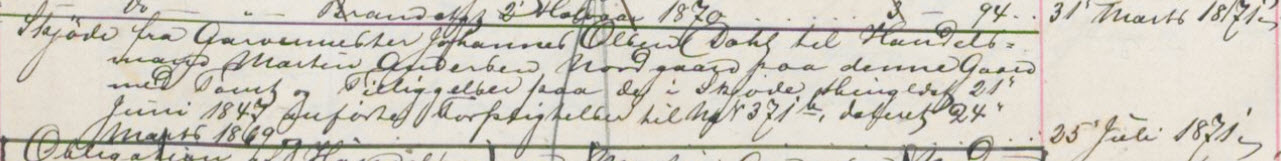 Do Brandskat 2 Halvaar 1870 . . . 3 – 94 . . 31 Marts 1871
Skjöde fra Garvermester Johannes Olsen Dahl til Handels-
mand Martin Andersen Nordgaard paa denne Gaard
med Tomt og Tilliggelser paa de i Skjöde thinglyst 21
Juni 1847 anförte Forpligtelser til No 371 b, dateret 24
Marts 1869 . . . 25 Juli 1871
Obligation af